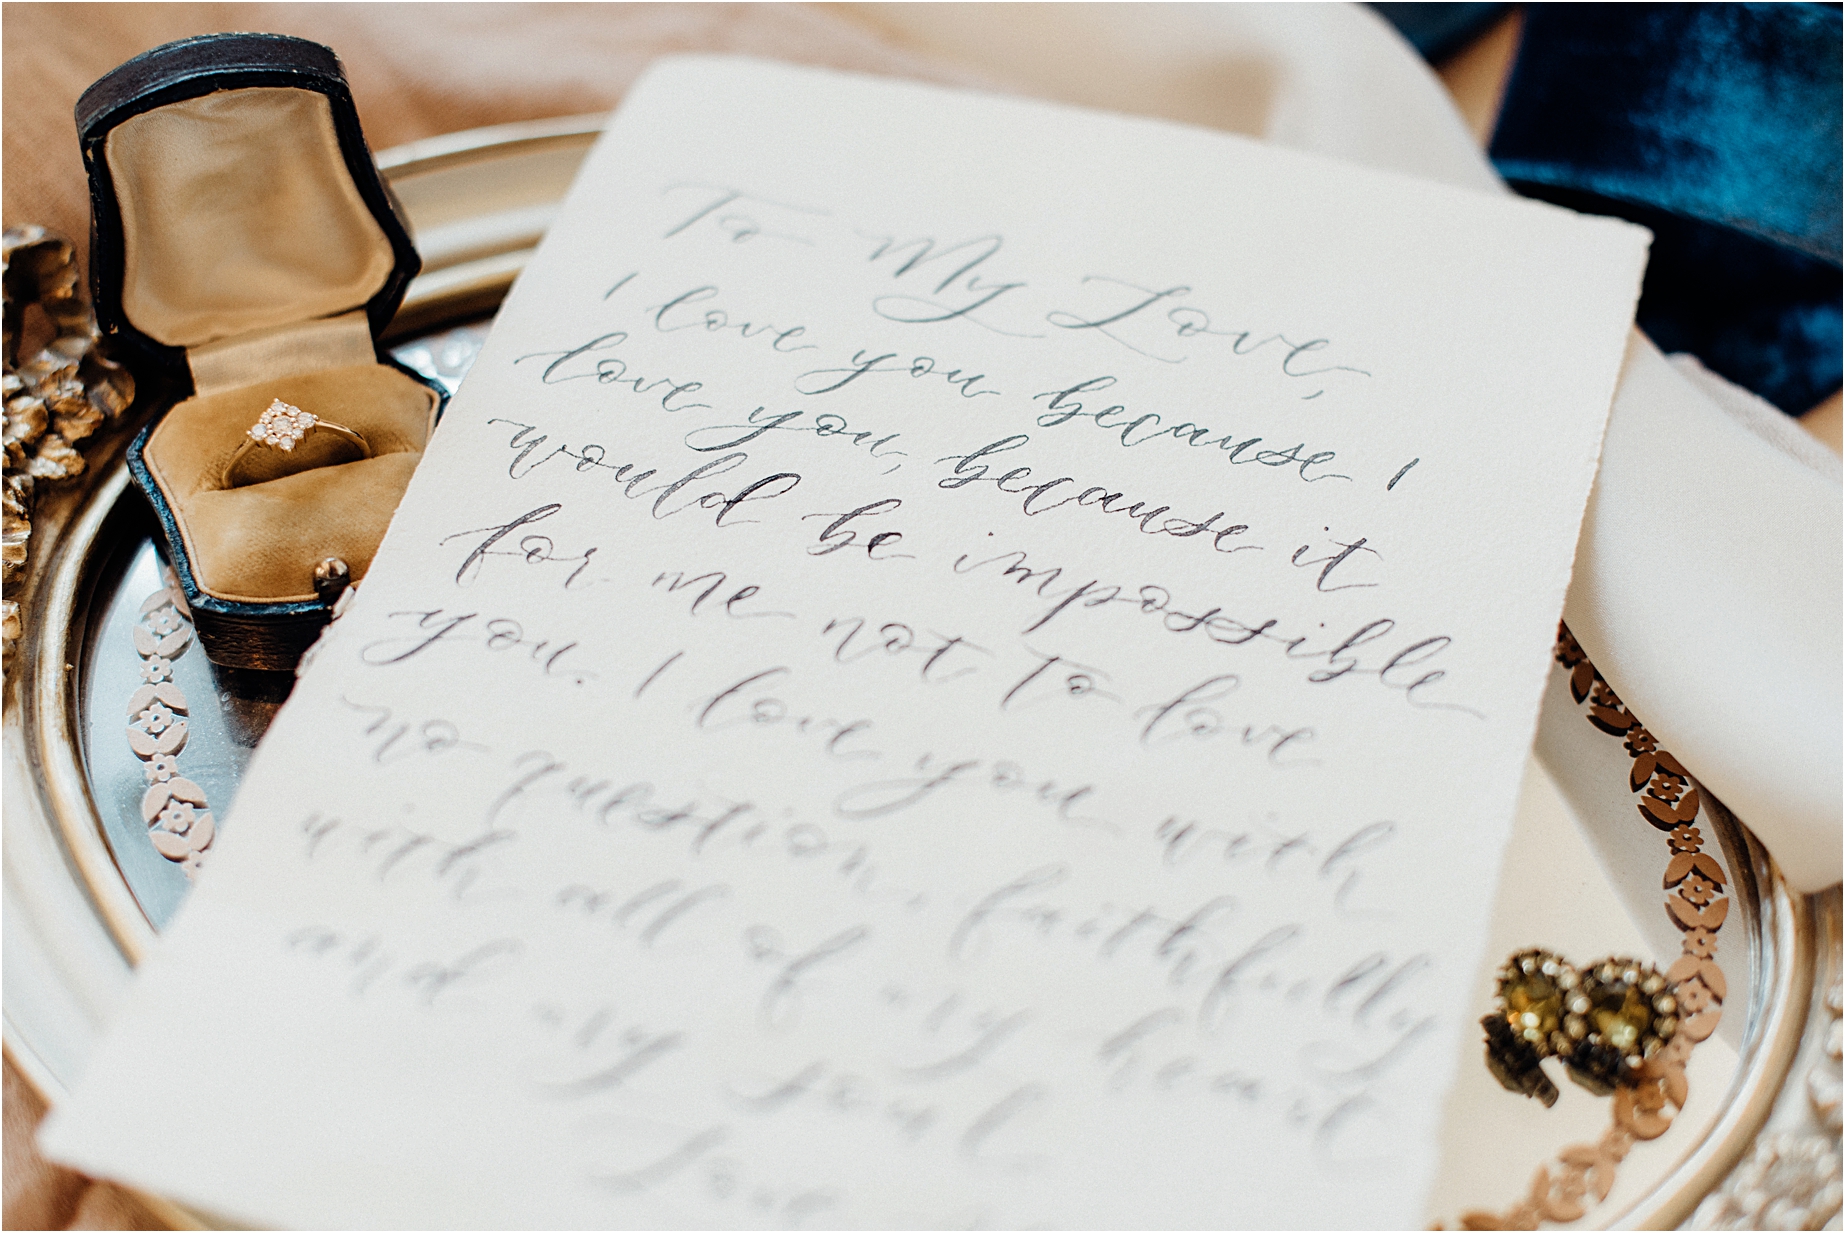 To My Love,
I love you because I
love you, because it
would be impossible
for me not to love
you. I love you with
no question, faithfully
with all of my heart
and my soul.
Love